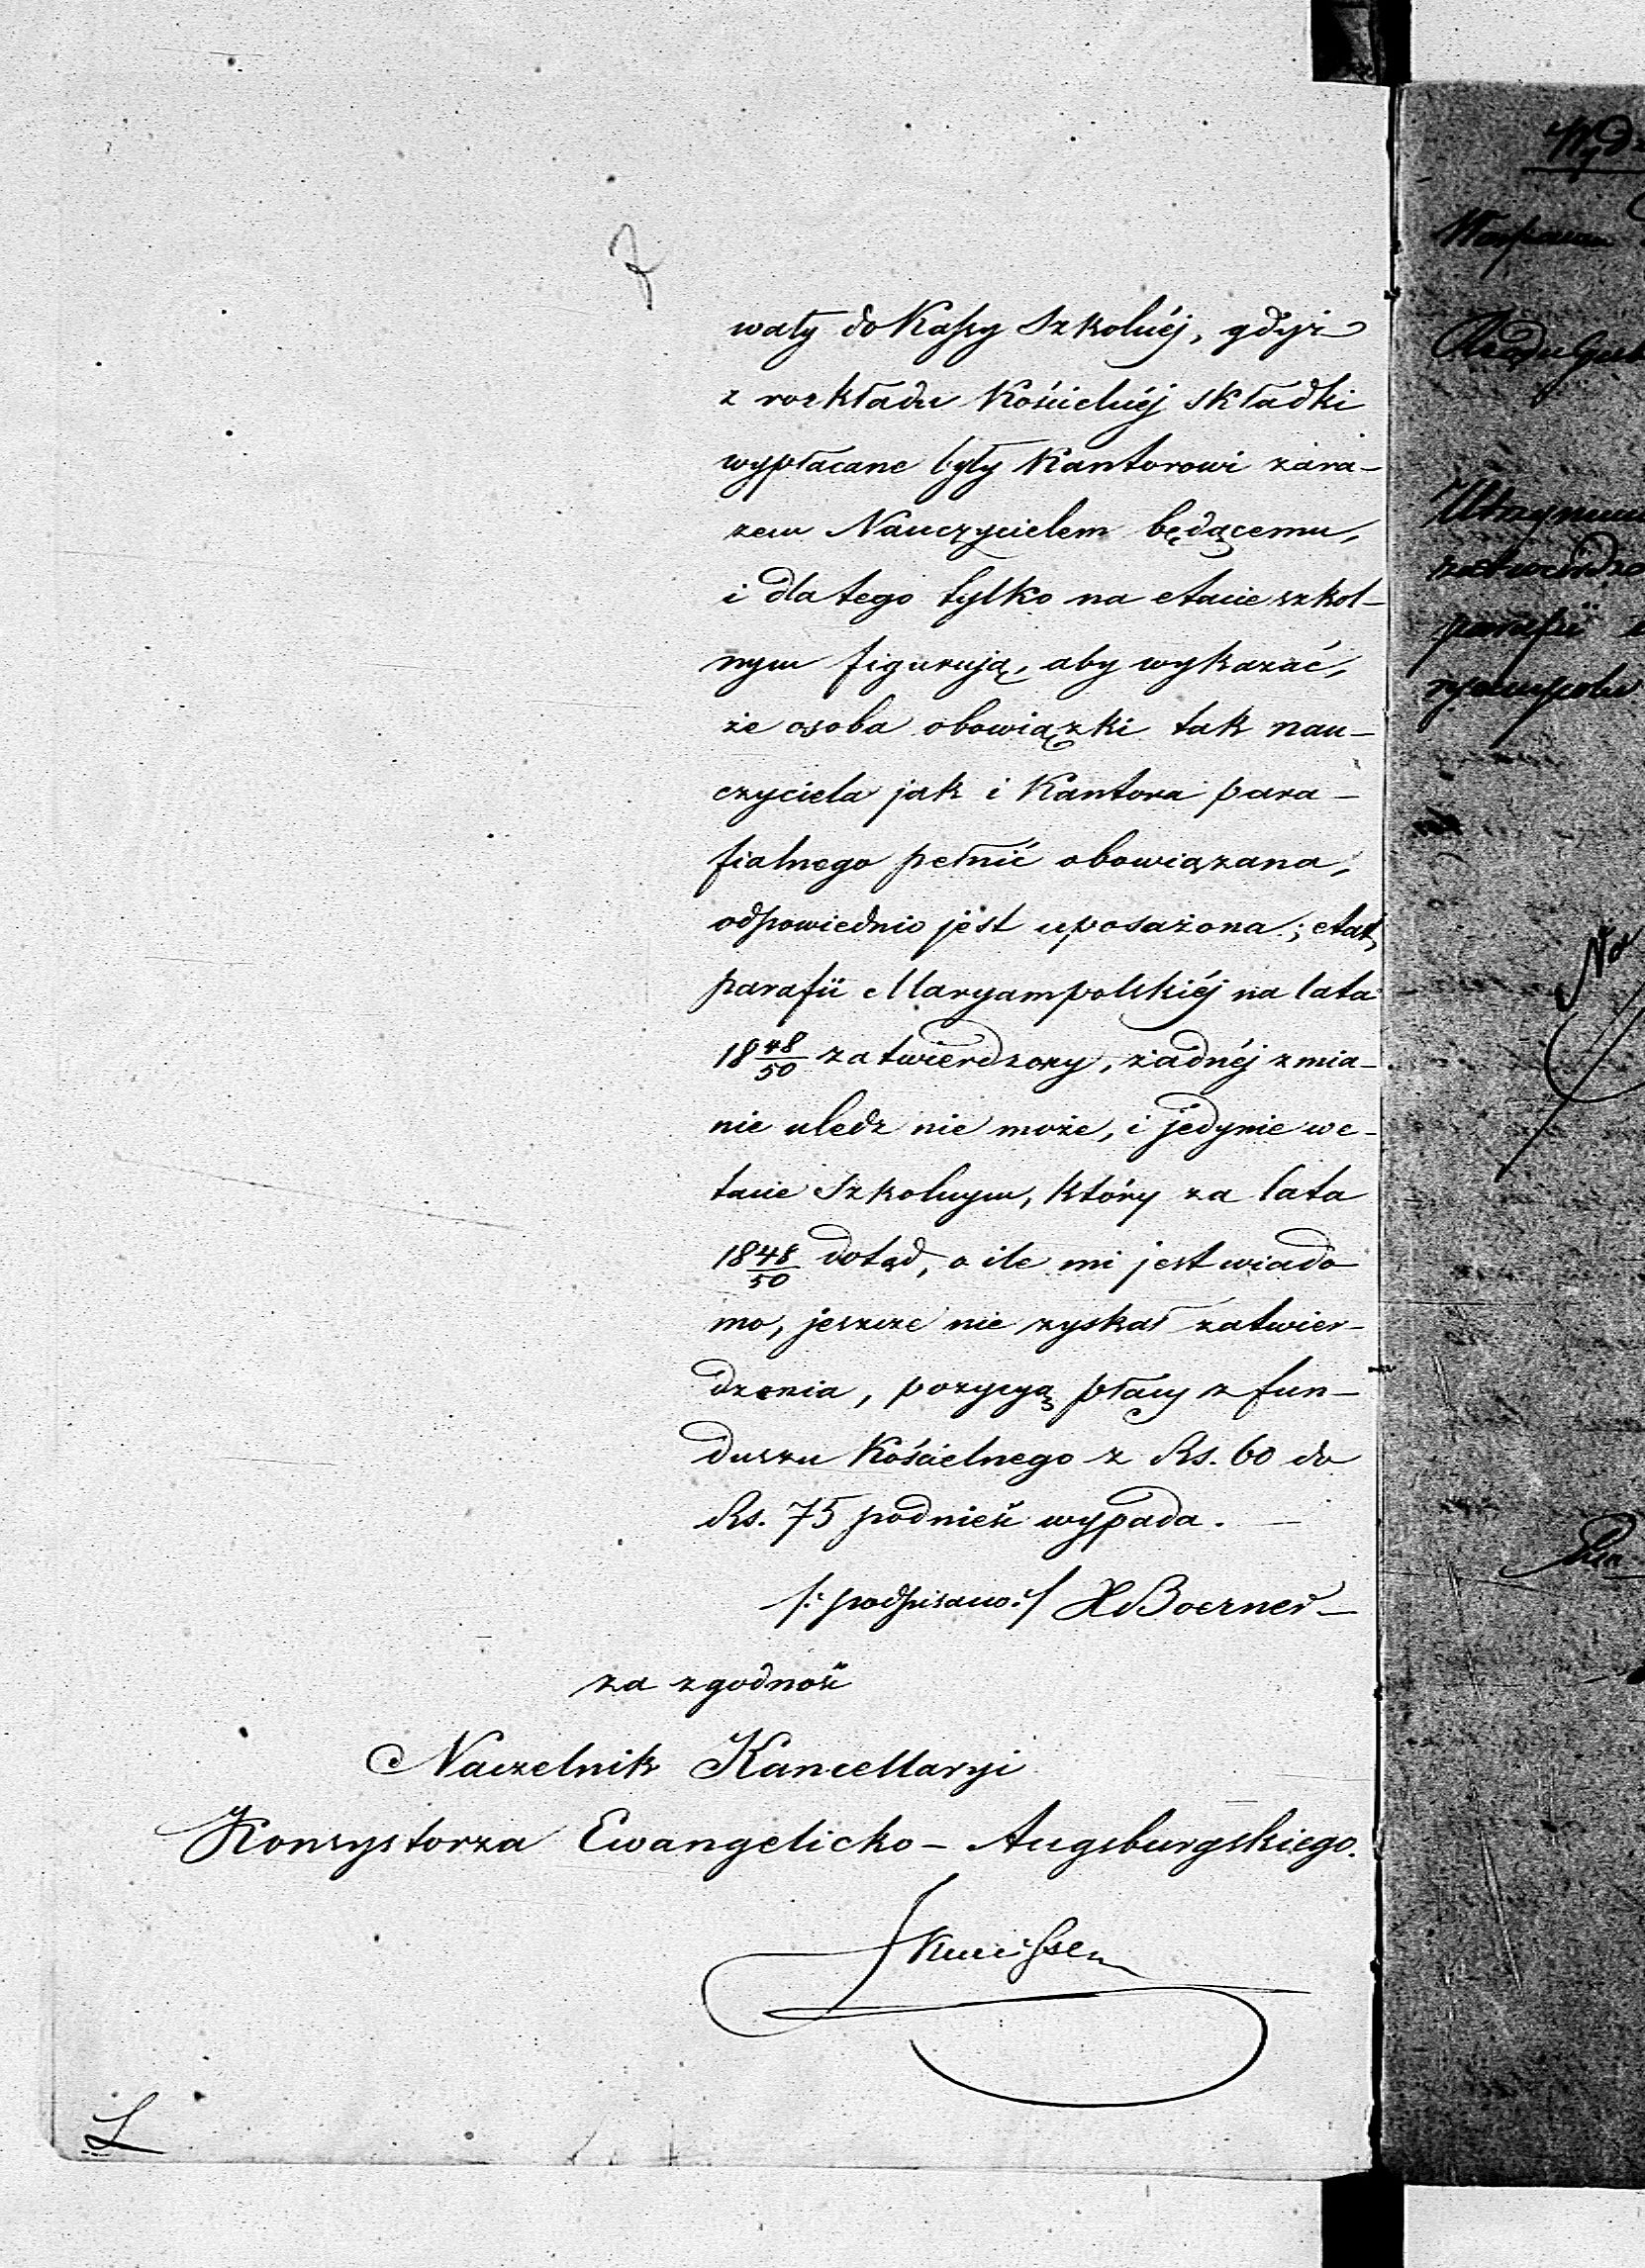 wały do Kassy Szkolnéj, gdyż
z rozkładu Kościelnéj składki
wypłacane były Kantorowi zara-
zem Nauczycielem będącemu,
i dla tego tylko na etacie szkol-
nym figurują, aby wykazać,
że osoba obowiązki tak nau-
czyciela jak i Kantora para-
fialnego pełnić obowiązana,
odpowiednio jest uposażona; etat
parafii Maryampolskiéj na lata
18 48/50 zatwierdzony, żadnéj zmia-
nie uledz nie może, i jedynie w e-
tacie Szkolnym, który za lata
18 48/50 dotąd, o ile mi jest wiado
mo, jeszcze nie zyskał zatwier-
dzenia, pozycyą płacy z fun-
duszu Kościelnego z Rs. 60 do
Rs. 75 podnieść wypada. —
/: podpisano :/ H Boerner —
za zgodność
Naczelnik Kancellaryi
Konsystorza Ewangelicko-Augsburgskiego.
L
Wydz
Rządu Gub
Utrzymu
zatwierdzo
parafii
No